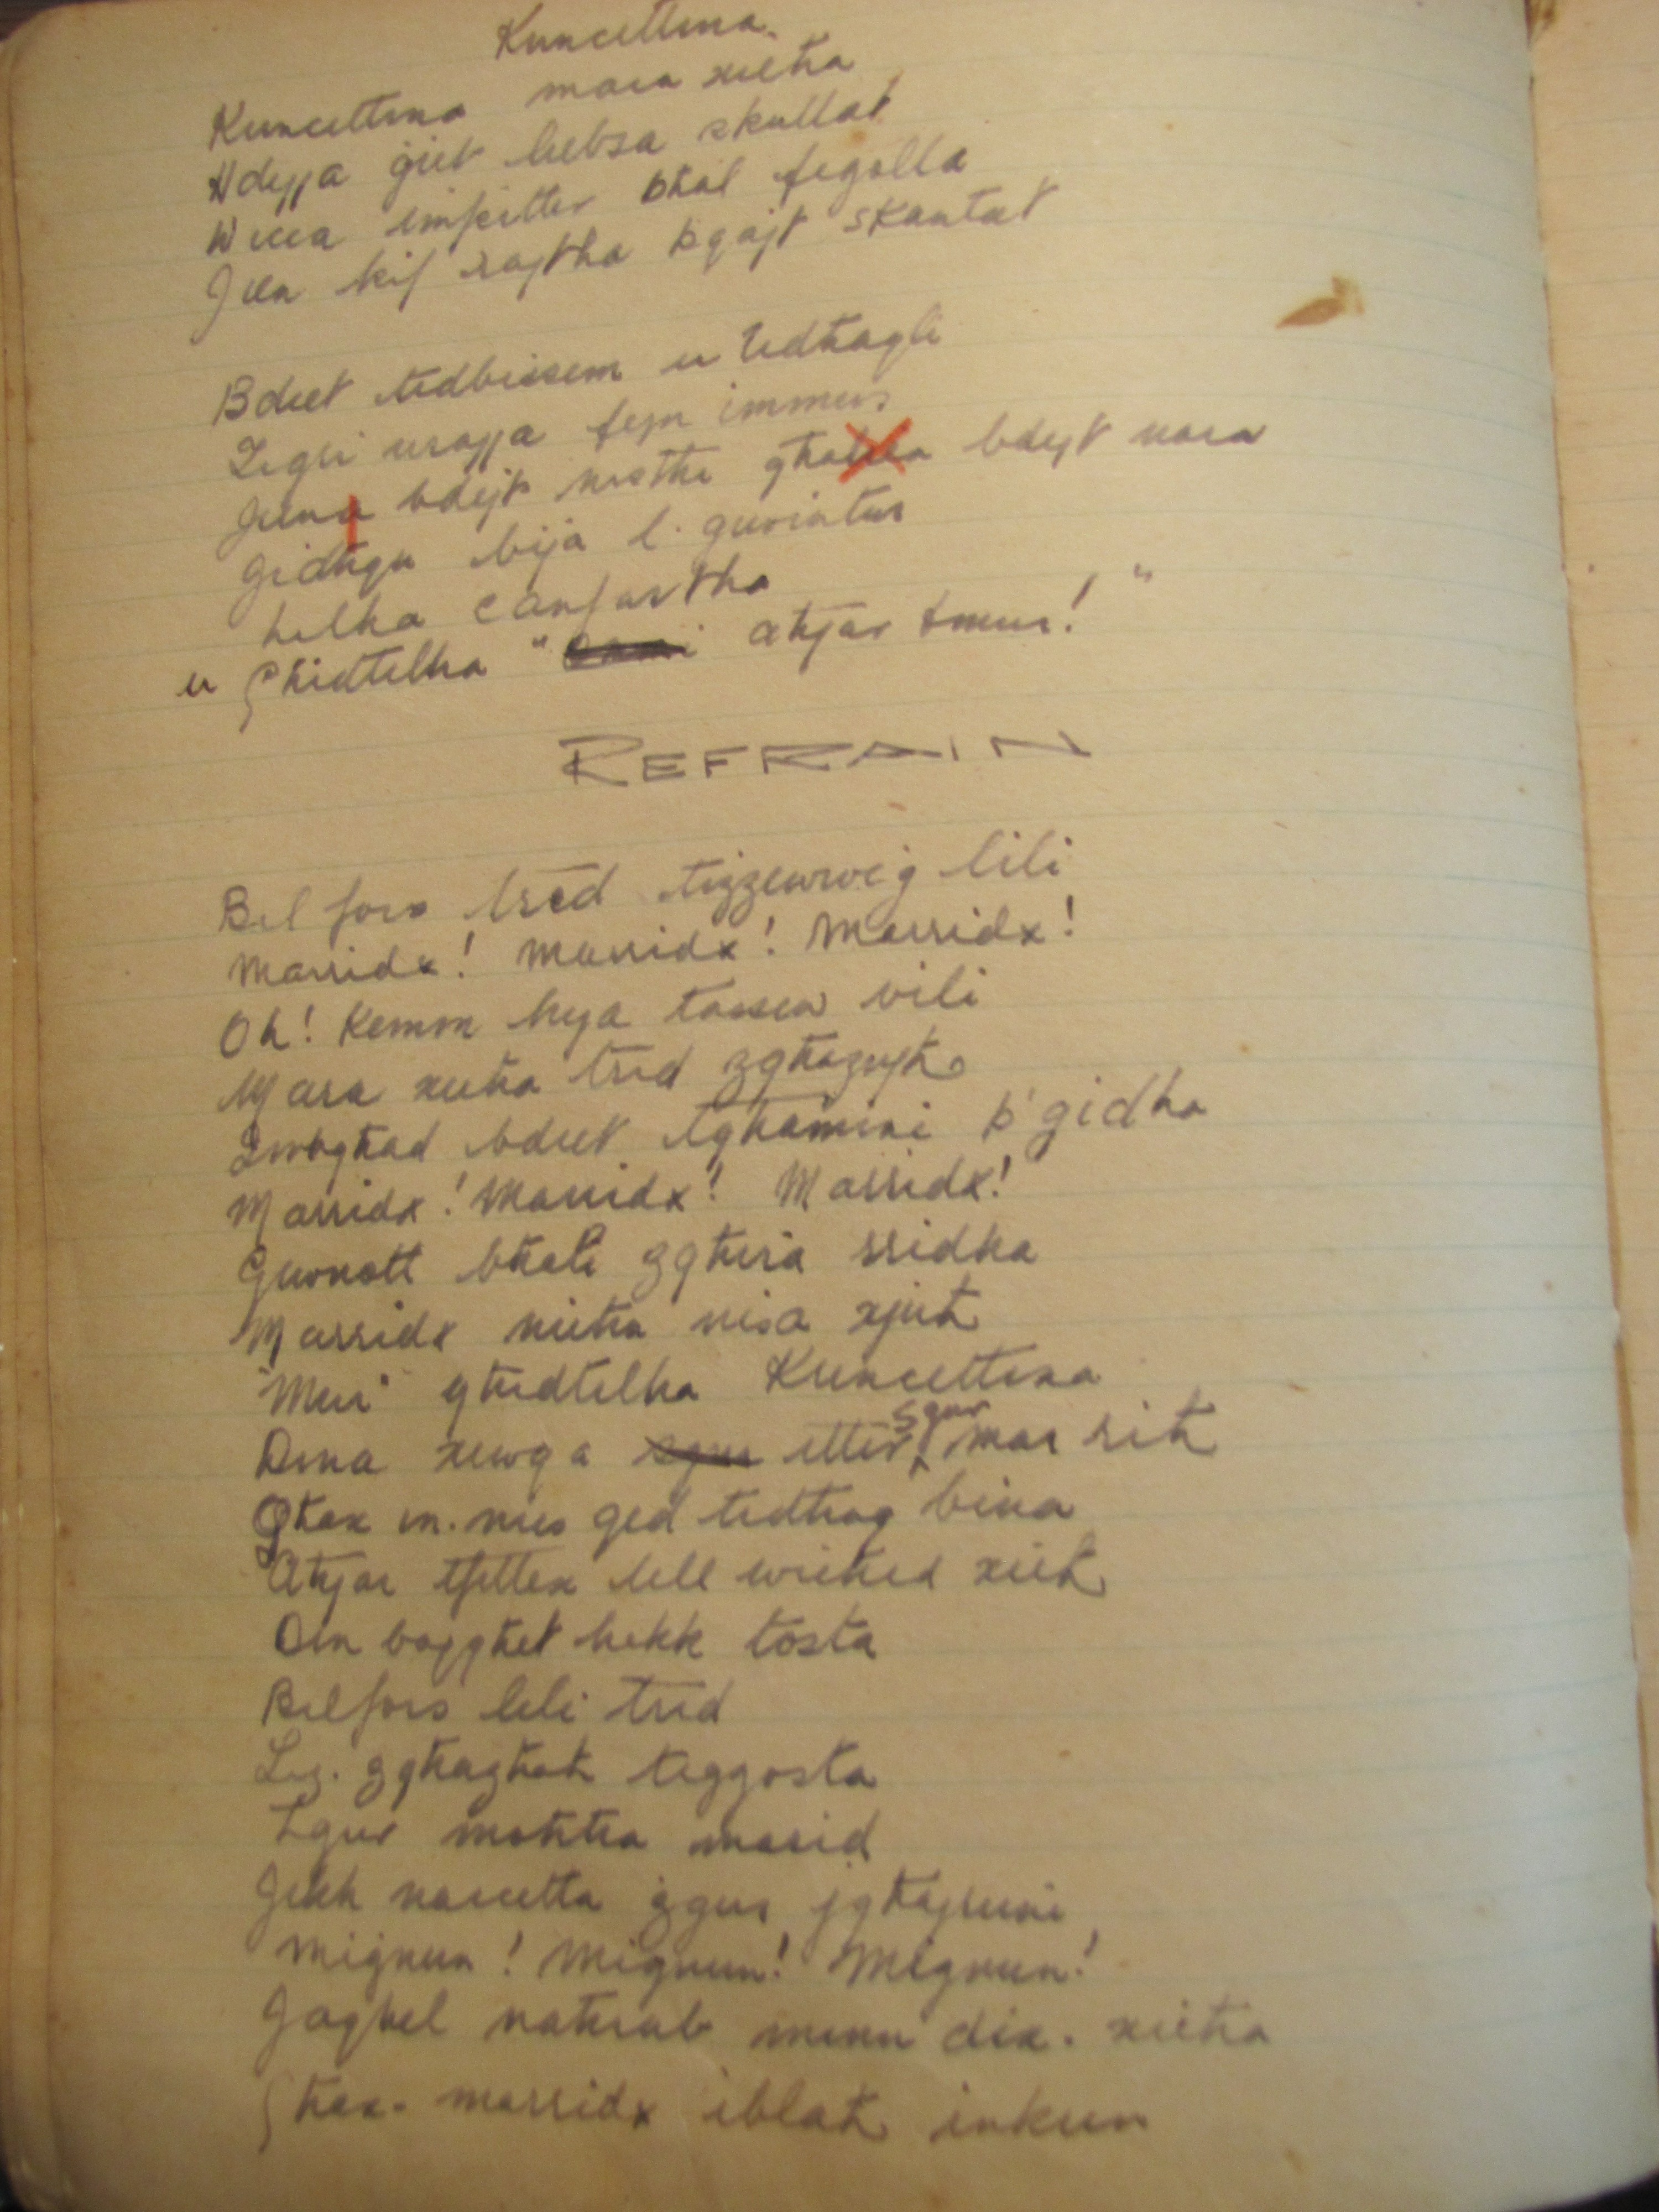 Kuncettina
Kuncettina mara xieħa
Ħdejja ġiet libsa skullat
Wiċċa impitter bħal fazolla
Jien kif rajtha bqajt skantat
Bdiet tidbissem u tidħaqli
Jiena bdejt nistħi bdejt nara
Ġidħqu bija l. ġuvintur
lilha
u Għidtilha " aħjar tmur! "
REFRAIN
Bil fors trid tiżżewweġ lili
Marridx! Marridx! Marridx!
Oh! Kemm hija tassew vili
Mara xieħa trid żgħażugħ
Imbgħad bdiet tgħamini b'gidha
Marridx! Marridx! Marridx!
Ġurnott bħali żgħira rridha
Marridx nieħu nisa xjuħ
"Mur" għidtilha Kuncettina
Dina xewqa itlir squr mar riħ
Għax in. nies qed tidħaq bina
Aħjar tfittex lill wieħed xiħ
Din baqgħet hekk tosta
Bilfors lili trid
Liż. żgħażagħ tiġġosta
Iżgur moħħa marid
Jekk narutta żgur jgħajruni
Mignun! Mignun! Mignun!
Jaqbel naħrab minn din. xieħa
Għax. marridx iblaħ inkun